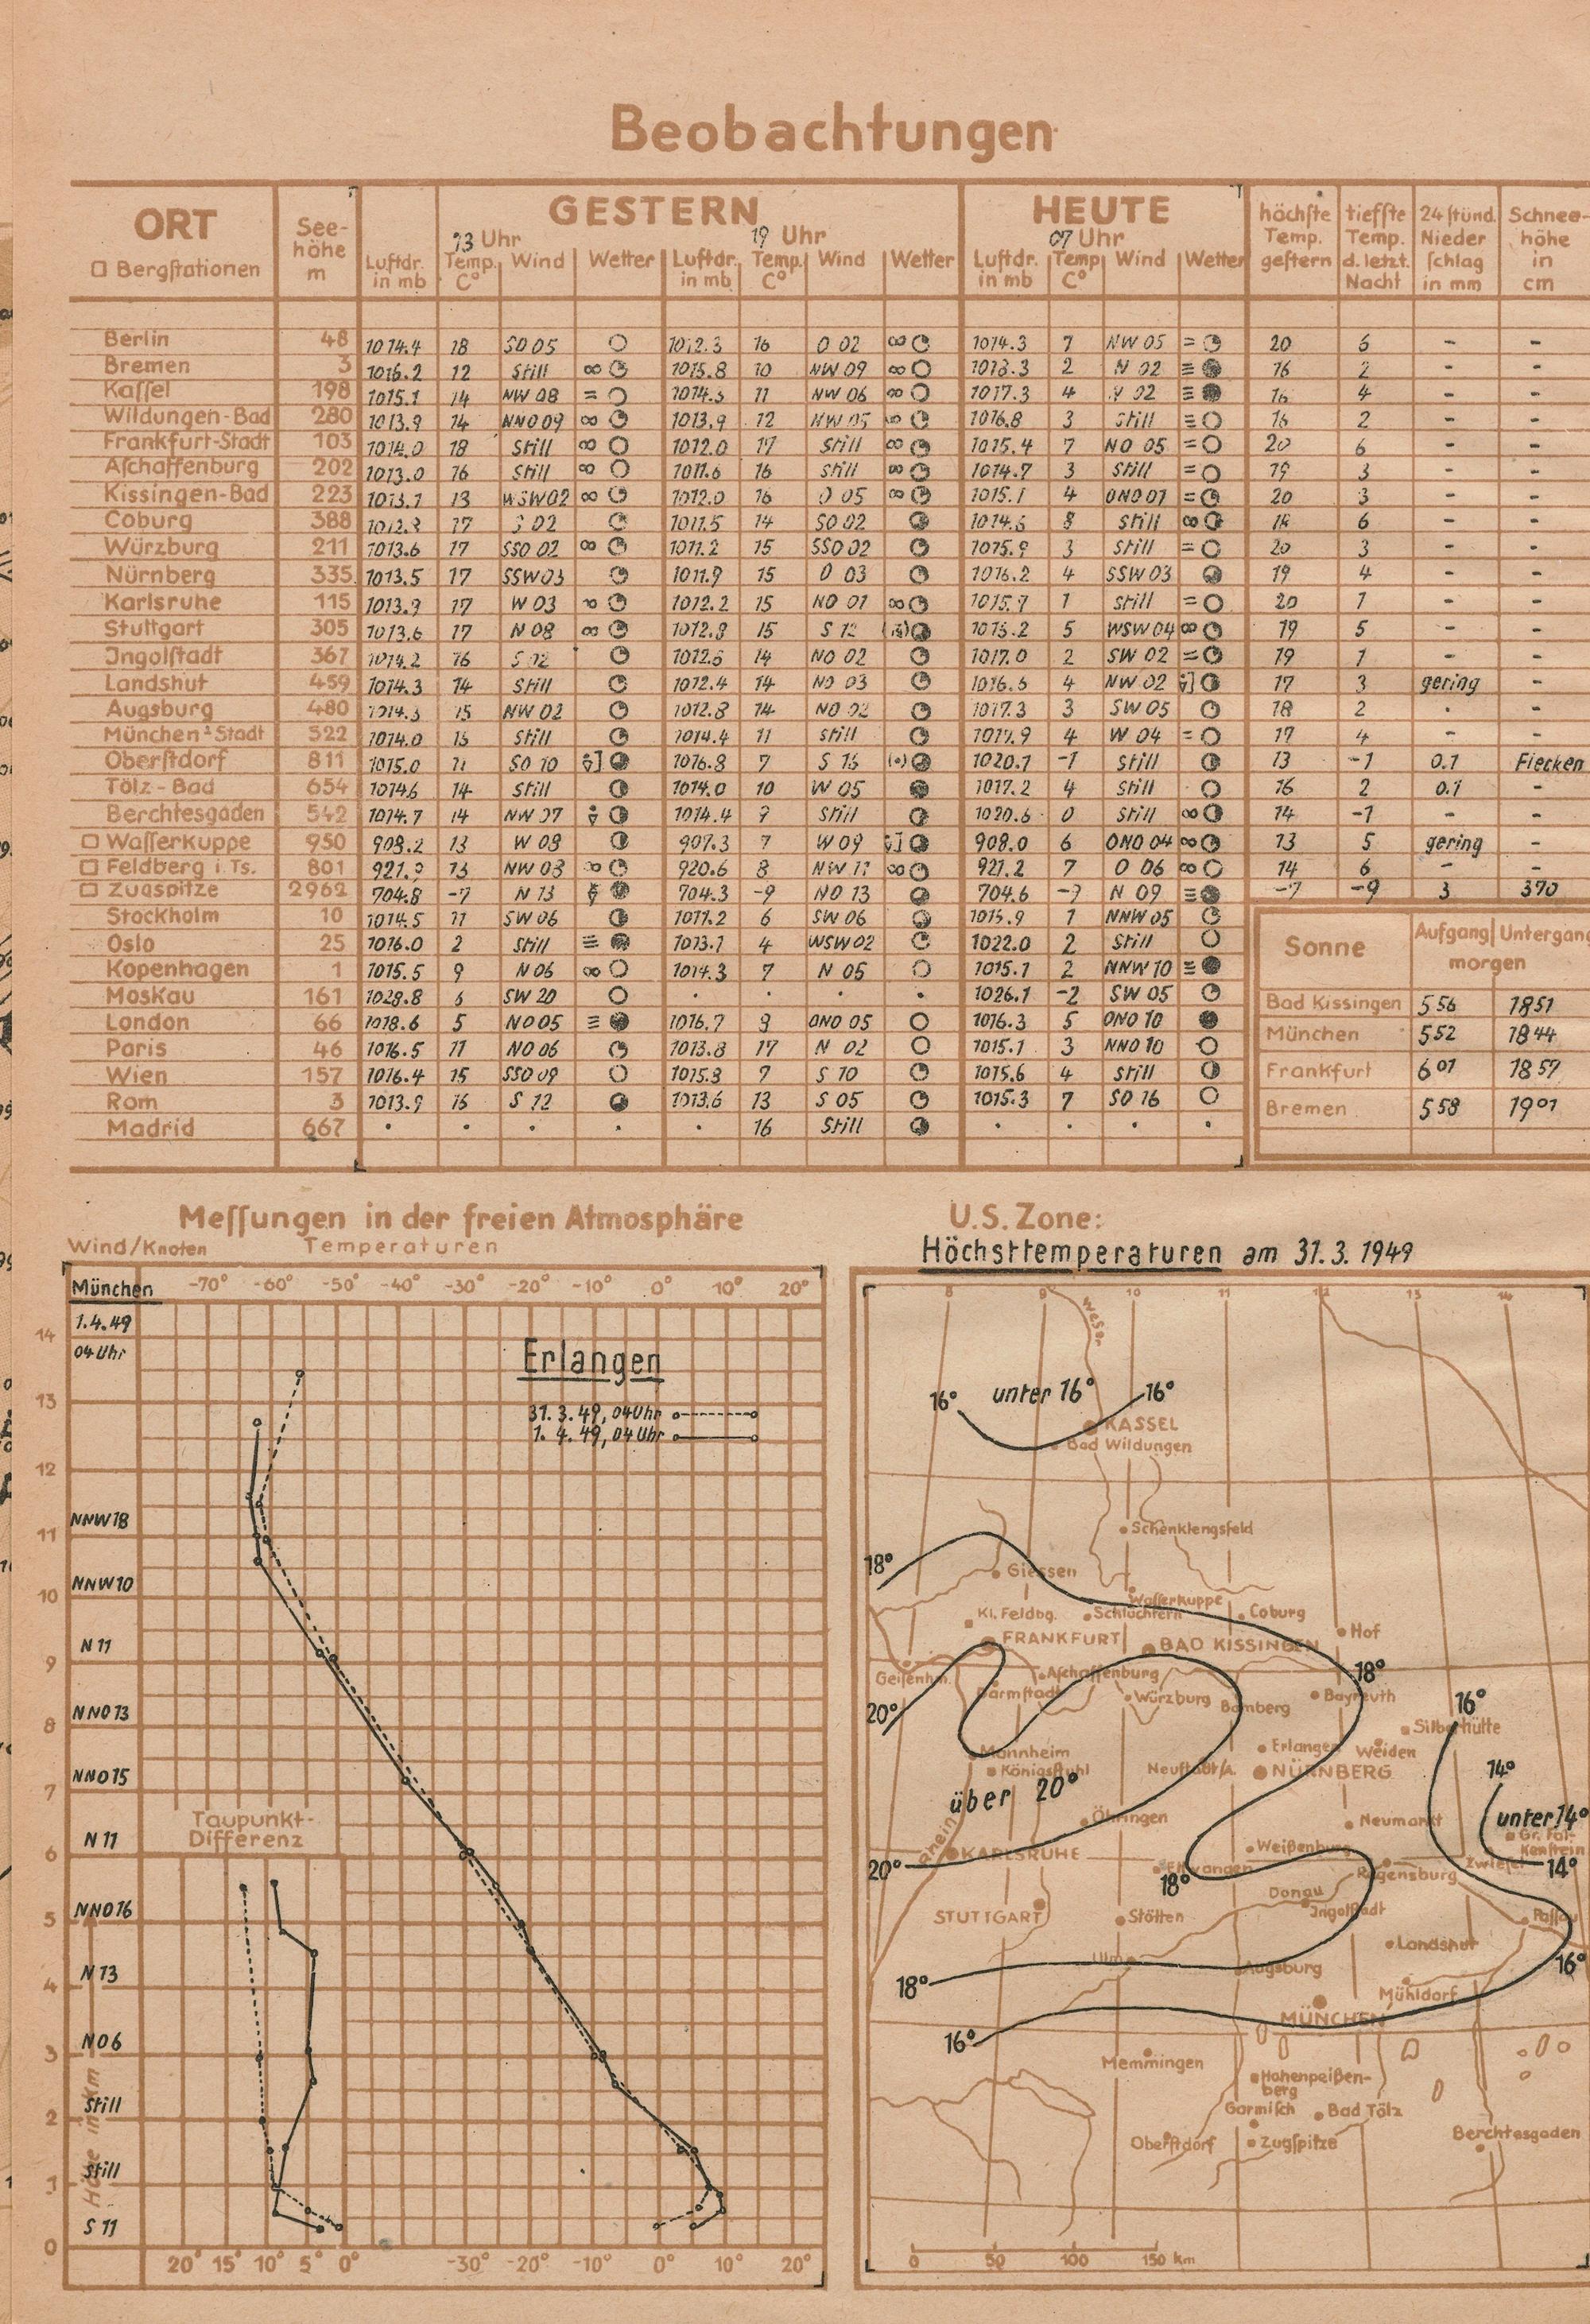 Beobachtungen
ORT
□ Bergſtationen
See-
höhe
m
GESTERN
HEUTE
13 Uhr
19 Uhr
07 Uhr
Luftdr. in mb Temp. C° Wind Wetter Luftdr. in mb Temp. C° Wind Wetter Luftdr. in mb Temp C° Wind Wetter
höchſte Temp. geſtern
tiefſte Temp. d. letzt. Nacht
24 ſtünd. Nieder ſchlag in mm
Schnee- höhe in cm
Berlin 48 1014.4 18 SO 05 1012.3 16 O 02 ∞ 1014.3 7 NW 05 = 20 6 - -
Bremen 3 1016.2 12 Still ∞ 1015.8 10 NW 09 ∞ 1018.3 2 N 02 ≡ 16 2 - -
Kaſſel 198 1015.1 14 NW 08 = 1014.5 11 NW 06 ∞ 1017.3 4 02 ≡ 16 4 - -
Wildungen-Bad 280 1013.9 14 NNO 09 ∞ 1013.9 12 NW 05 ∞ 1016.8 3 Still ≡ 16 2 - -
Frankfurt-Stadt 103 1014.0 18 Still ∞ 1012.0 17 Still ∞ 1015.4 7 NO 05 = 20 6 - -
Aſchaffenburg 202 1013.0 16 Still ∞ 1011.6 16 Still ∞ 1014.7 3 Still = 19 3 - -
Kissingen-Bad 223 1013.1 13 WSW 02 ∞ 1012.0 16 O 05 ∞ 1015.1 4 ONO 01 = 20 3 - -
Coburg 388 17 S 02 1011.5 14 SO 02 1014.6 8 Still ∞ 18 6 - -
Würzburg 211 1013.6 17 SSO 02 ∞ 1011.2 15 SSO 02 1015.9 3 Still = 20 3 - -
Nürnberg 335 1013.5 17 SSW 03 1011.9 15 O 03 1016.2 4 SSW 03 19 4 - -
Karlsruhe 115 1013.9 17 W 03 ∞ 1012.2 15 NO 01 ∞ 1015.7 1 Still = 20 1 - -
Stuttgart 305 1013.6 17 N 08 ∞ 1012.8 15 S 12 1015.2 5 WSW 04 ∞ 19 5 - -
Ingolſtadt 367 1014.2 16 S 02 1012.6 14 NO 02 1017.0 2 SW 02 = 19 1 - -
Landshut 459 1014.3 14 Still 1012.4 14 NO 03 1016.6 4 NW 02 17 3 gering -
Augsburg 480 1014.3 15 NW 02 1012.8 14 NO 02 1017.3 3 SW 05 18 2 . -
München-Stadt 522 1014.0 15 Still 1014.4 11 Still 1017.9 4 W 04 = 17 4 - -
Oberſtdorf 811 1015.0 11 SO 10 1016.8 7 S 16 1020.1 -1 Still 13 -1 0.1 Flecken
Tölz-Bad 654 1014.6 14 Still 1014.0 10 W 05 1017.2 4 Still 16 2 0.1 -
Berchtesgaden 542 1014.7 14 NW 07 1014.4 9 Still 1020.6 0 Still ∞ 14 -1 - -
□ Waſſerkuppe 950 909.2 13 W 09 907.3 7 W 09 908.0 6 ONO 04 ∞ 13 5 gering -
□ Feldberg i. Ts. 801 921.9 13 NW 03 ∞ 920.6 8 NW 11 ∞ 921.2 7 O 06 ∞ 14 6 - -
□ Zugspitze 2962 704.8 -7 N 13 704.3 -9 NO 13 704.6 -9 N 09 ≡ -7 -9 3 370
Stockholm 10 1014.5 11 SW 06 1011.2 6 SW 06 1015.9 1 NNW 05
Oslo 25 1016.0 2 Still ≡ 1013.1 4 WSW 02 1022.0 2 Still
Kopenhagen 1 1015.5 9 N 06 ∞ 1014.3 7 N 05 1015.1 2 NNW 10 ≡
Moskau 161 1028.8 6 SW 20 . . . . 1026.1 -2 SW 05
London 66 1018.6 5 NO 05 ≡ 1016.7 9 ONO 05 1016.3 5 ONO 10
Paris 46 1016.5 11 NO 06 1013.8 17 N 02 1015.1 3 NNO 10
Wien 157 1016.4 15 SSO 09 1015.3 9 S 10 1015.6 4 Still
Rom 3 1013.9 16 S 12 1013.6 13 S 05 1015.3 7 SO 16
Madrid 667 . . . . . 16 Still . . . .
Sonne Aufgang Untergang
morgen
Bad Kissingen 5 56 18 51
München 5 52 18 44
Frankfurt 6 01 18 57
Bremen 5 58 19 01
Meſſungen in der freien Atmosphäre
Wind/Knoten Temperaturen
München -70° -60° -50° -40° -30° -20° -10° 0° 10° 20°
1.4.49
14
04 Uhr
Erlangen
13
31. 3. 49, 04 Uhr
1. 4. 49, 04 Uhr
12
NNW 18
11
NNW 10
10
N 11
9
NNO 13
8
NNO 15
7
Taupunkt-
Differenz
N 11
6
NNO 16
5
N 13
4
NO 6
3
Still
2
Still
1
S 11
0
Höhe in Km
20° 15° 10° 5° 0° -30° -20° -10° 0° 10° 20°
U.S. Zone:
Höchsttemperaturen am 31. 3. 1949
8 9 10 11 12 13 14
Weser
16° unter 16° 16°
KASSEL
Bad Wildungen
Schenklengsfeld
18°
Giessen
Waſſerkuppe
Kl. Feldbg. Schlüchtern Coburg
FRANKFURT BAD KISSINGEN Hof
18°
Geiſenhm. Aſchaffenburg
Darmſtadt Würzburg Bamberg Bayreuth
20°
16°
Silberhütte
Mannheim Erlangen Weiden
Königsſtuhl Neuſtadt/A. NÜRNBERG
14°
über 20°
Öhringen Neumarkt unter 14°
Rhein
KARLSRUHE Weißenburg Zwieſel
20° Ellwangen Regensburg 14°
18°
Donau
STUTTGART Stötten Ingolſtadt Paſſau
Ulm Landshut
Augsburg 16°
18° Mühldorf
MÜNCHEN
16°
Memmingen
Hohenpeißen-
berg
Garmiſch Bad Tölz
Oberſtdorf Zugſpitze Berchtesgaden
0 50 100 150 km